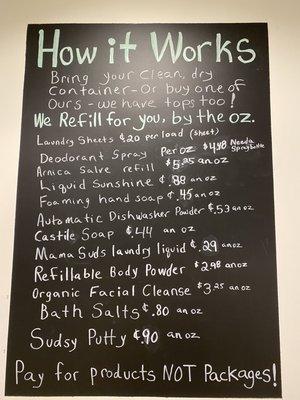 How it Works
Bring your clean, dry
Container - Or buy one of
Ours - we have tops too!
We Refill for you, by the oz.
Laundry Sheets ¢20 per load (sheet)
Deodorant Spray Per oz $4.48 Needs Spray bottle
Arnica Salve refill $5.25 an oz
Liquid Sunshine ¢.88 an oz
Foaming hand soap ¢.45 an oz
Automatic Dishwasher Powder ¢.53 an oz.
Castile Soap ¢.44 an oz
Mama Suds laundry liquid ¢.29 an oz
Refillable Body Powder $2.98 an oz
Organic Facial Cleanse $3.25 an oz
Bath Salts ¢.80 an oz
Sudsy Putty ¢.90 an oz
Pay for products NOT Packages!